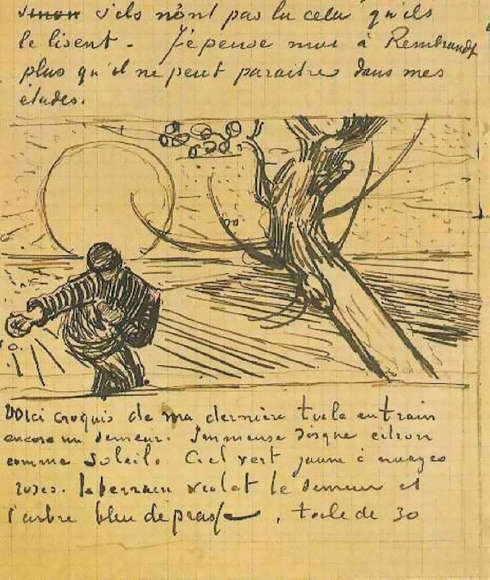 sinon s'ils n'ont pas lu cela qu'ils
le lisent. Je pense moi à Rembrandt
plus qu'il ne peut paraitre dans mes
études.
Voici croquis de ma dernière toile en train
encore un semeur. Immense disque citron
comme soleil. Ciel vert jaune à nuages
roses. le terrain violet le semeur et
l'arbre bleu de prusse, toile de 30